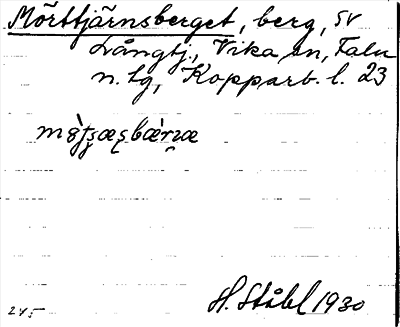 Mörttjärnsberget, berg, SV
Långtj., Vika sn, Falu
n. tg, Kopparb. l. 23
H. Ståhl 1930
245